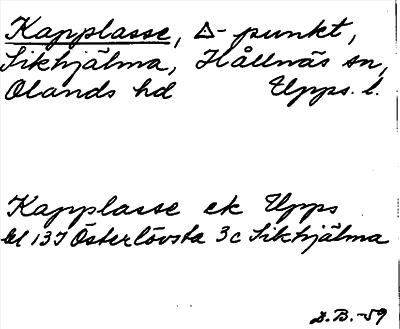 Kapplasse, Δ-punkt,
Sikhjälma, Hållnäs sn,
Olands hd Upps. l.
Kapplasse ek Upps
bl 137 Österlövsta 3c Sikhjälma
D.B.-59